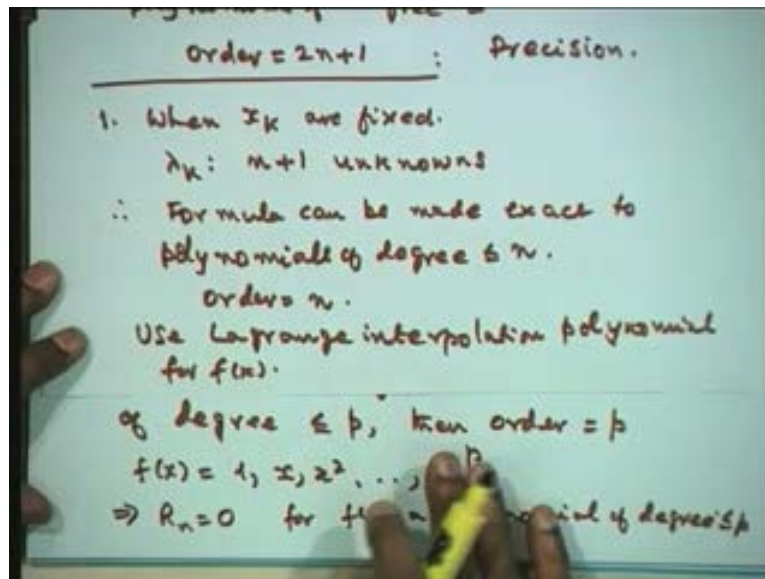 order = 2n+1 : Precision.
1. When x_K are fixed.
λ_K : n+1 unknowns
∴ Formula can be made exact to
polynomials of degree ≤ n.
order = n.
Use Lagrange interpolation polynomial
for f(x).
of degree ≤ p, then order = p
f(x) = 1, x, x², ..., p
⇒ R_n = 0 for of degree ≤ p